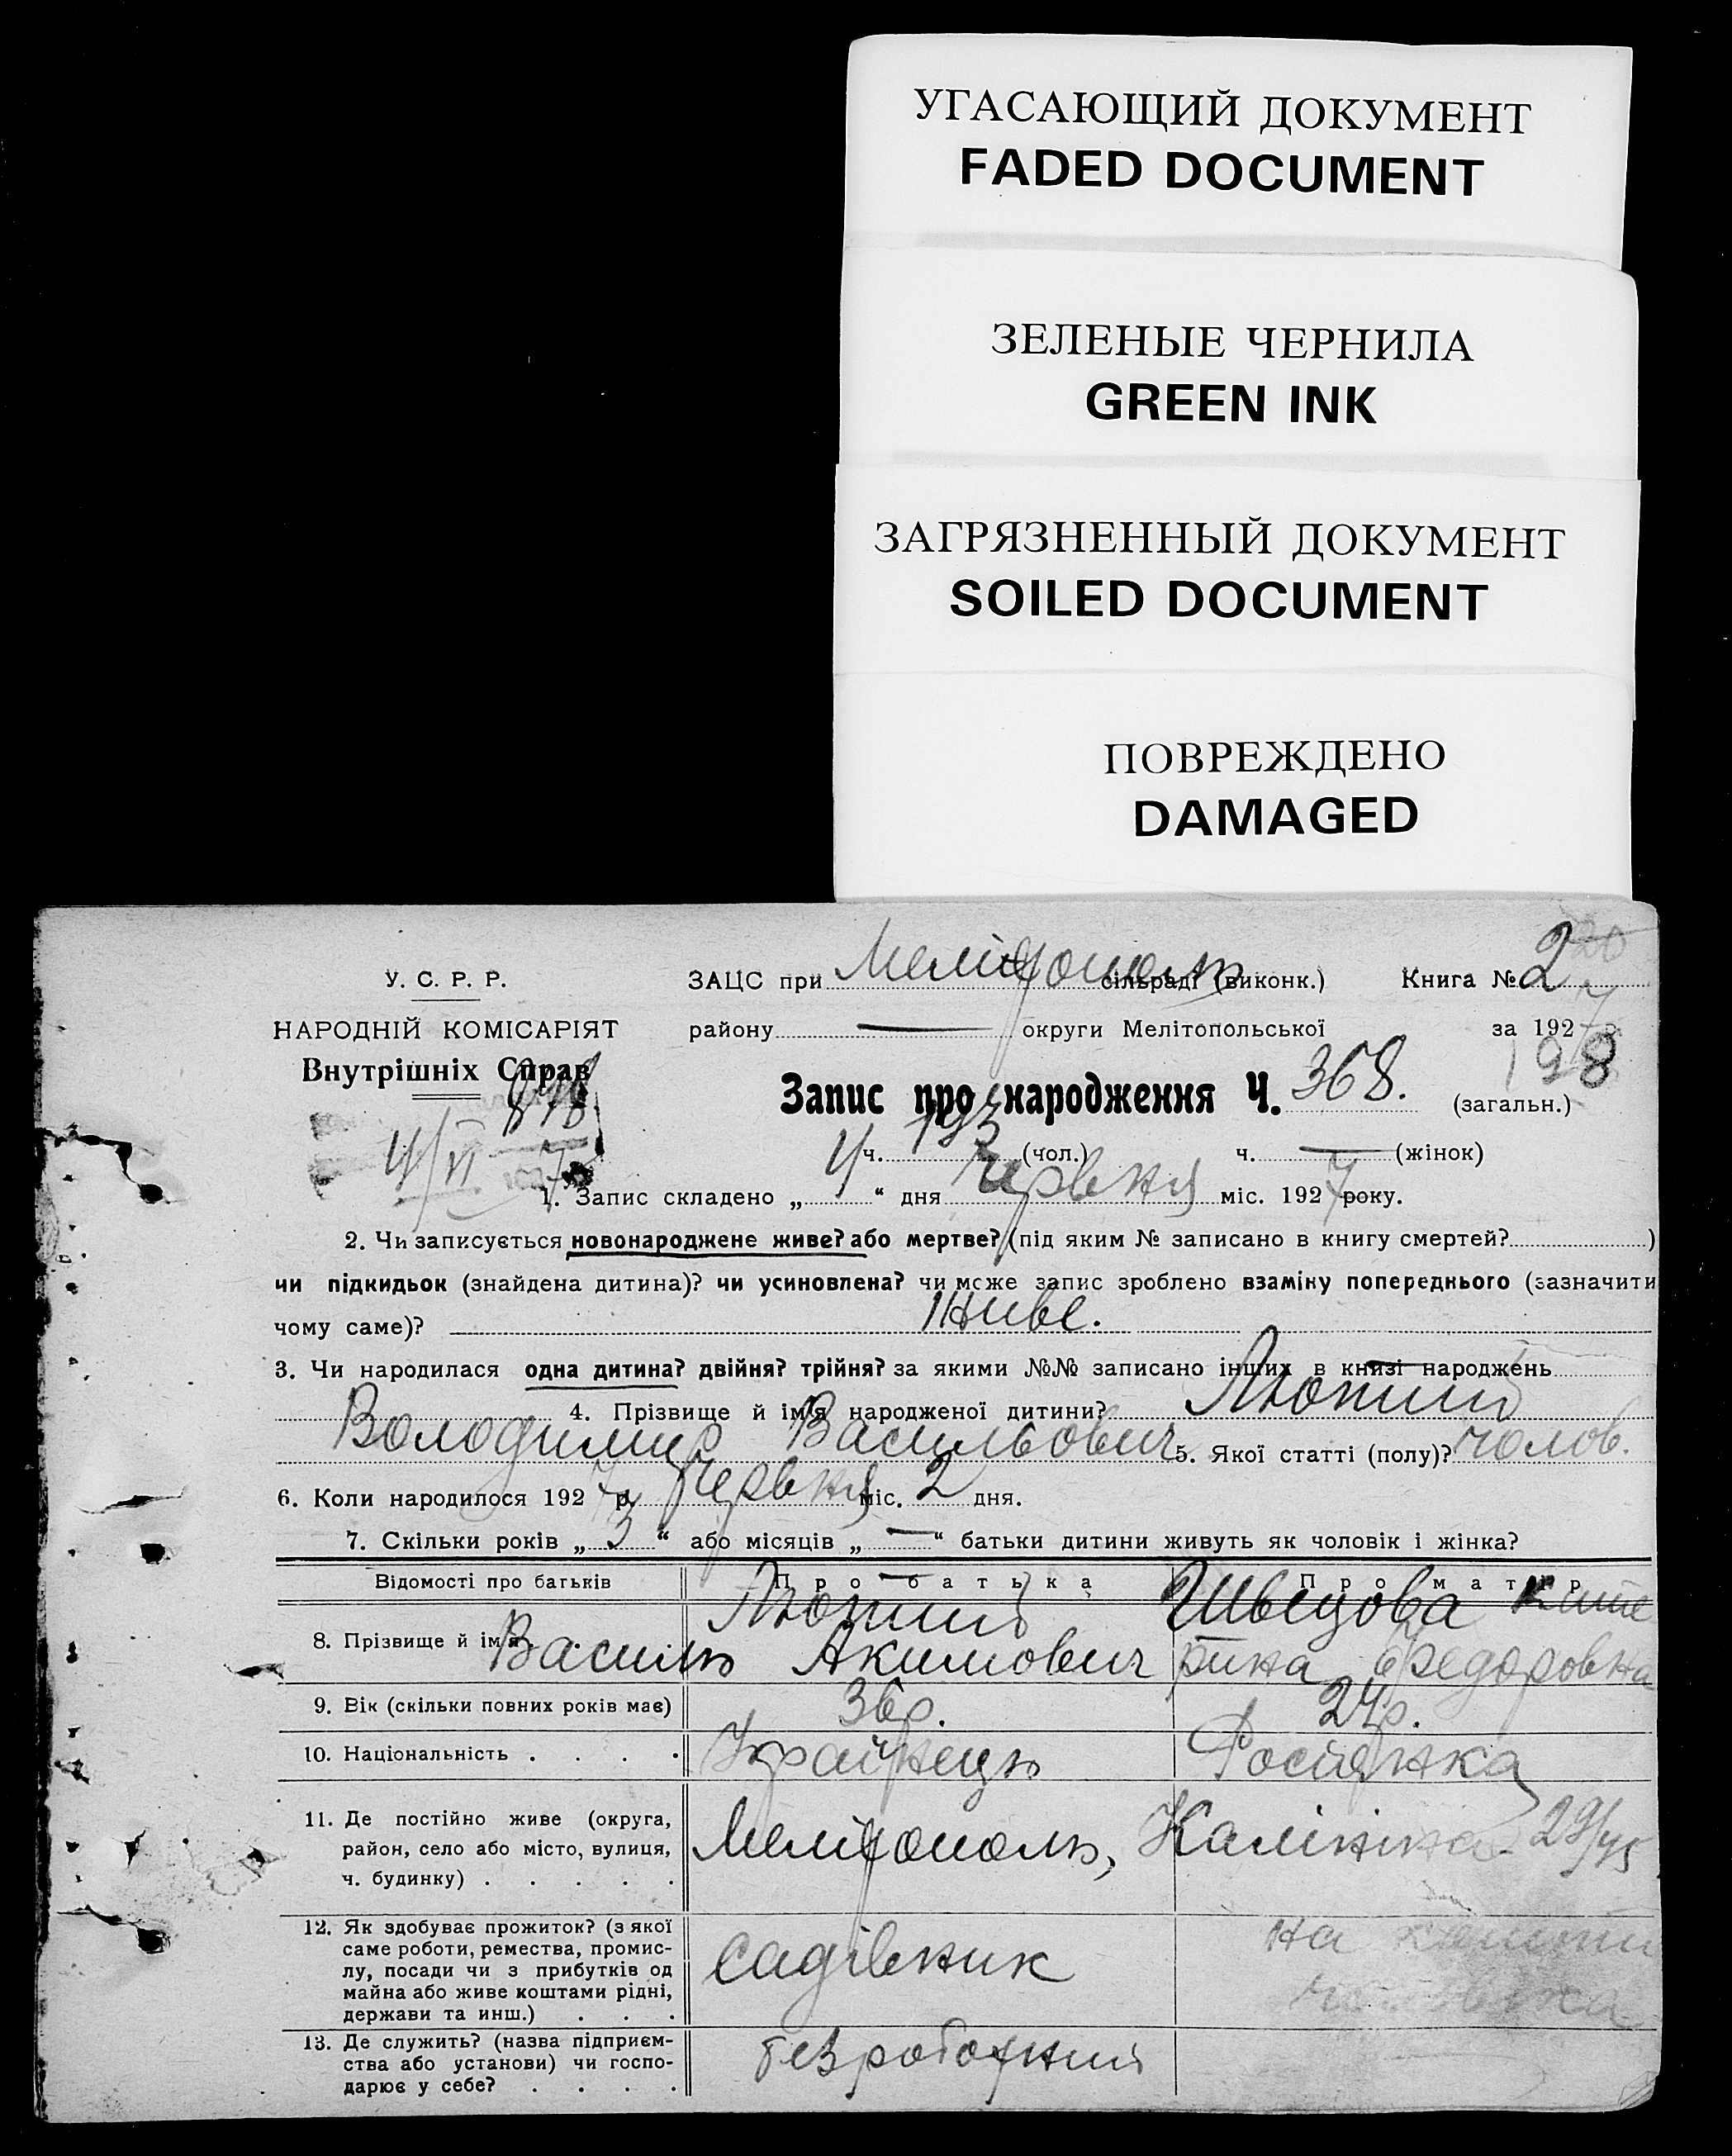 УГАСАЮЩИЙ ДОКУМЕНТ
FADED DOCUMENT
ЗЕЛЕНЫЕ ЧЕРНИЛА
GREEN INK
ЗАГРЯЗНЕННЫЙ ДОКУМЕНТ
SOILED DOCUMENT
ПОВРЕЖДЕНО
DAMAGED
У. С. Р. Р. ЗАЦС при Мелітополь сільраді (виконк.) Книга № 2
НАРОДНІЙ КОМІСАРІЯТ району — округи Мелітопольської за 1927
Внутрішніх Справ 198
Запис про народження Ч. 368. (загальн.)
4/VI
ч. 193 (чол.) ч. — (жінок)
1. Запис складено „ 4 “ дня Червня міс. 1927 року.
2. Чи записується новонароджене живе? або мертве? (під яким № записано в книгу смертей? )
чи підкидьок (знайдена дитина)? чи усиновлена? чи може запис зроблено взаміну попереднього (зазначити
чому саме)? Живе.
3. Чи народилася одна дитина? двійня? трійня? за якими №№ записано інших в книзі народжень —
4. Прізвище й ім'я народженої дитини? Лютий
Володимир Васильович 5. Якої статті (полу)? чолов.
6. Коли народилося 1927 р. Червня міс. 2 дня.
7. Скільки років „ 3 “ або місяців „ — “ батьки дитини живуть як чоловік і жінка?
Відомості про батьків Про батька Про матір
8. Прізвище й ім'я Лютий Швецова Кате
Василь Акимович рина Федоровна
9. Вік (скільки повних років має) 36р. 24р.
10. Національність . . . . Українець Росіянка
11. Де постійно живе (округа,
район, село або місто, вулиця, Мелітополь, Калініна 29/45
ч. будинку) . . . . .
12. Як здобуває прожиток? (з якої на кошти
саме роботи, ремества, промис-
лу, посади чи з прибутків од садівник
майна або живе коштами рідні, чоловіка
держави та инш.) . . .
13. Де служить? (назва підприєм-
ства або установи) чи госпо- безроботний
дарює у себе? . . . .